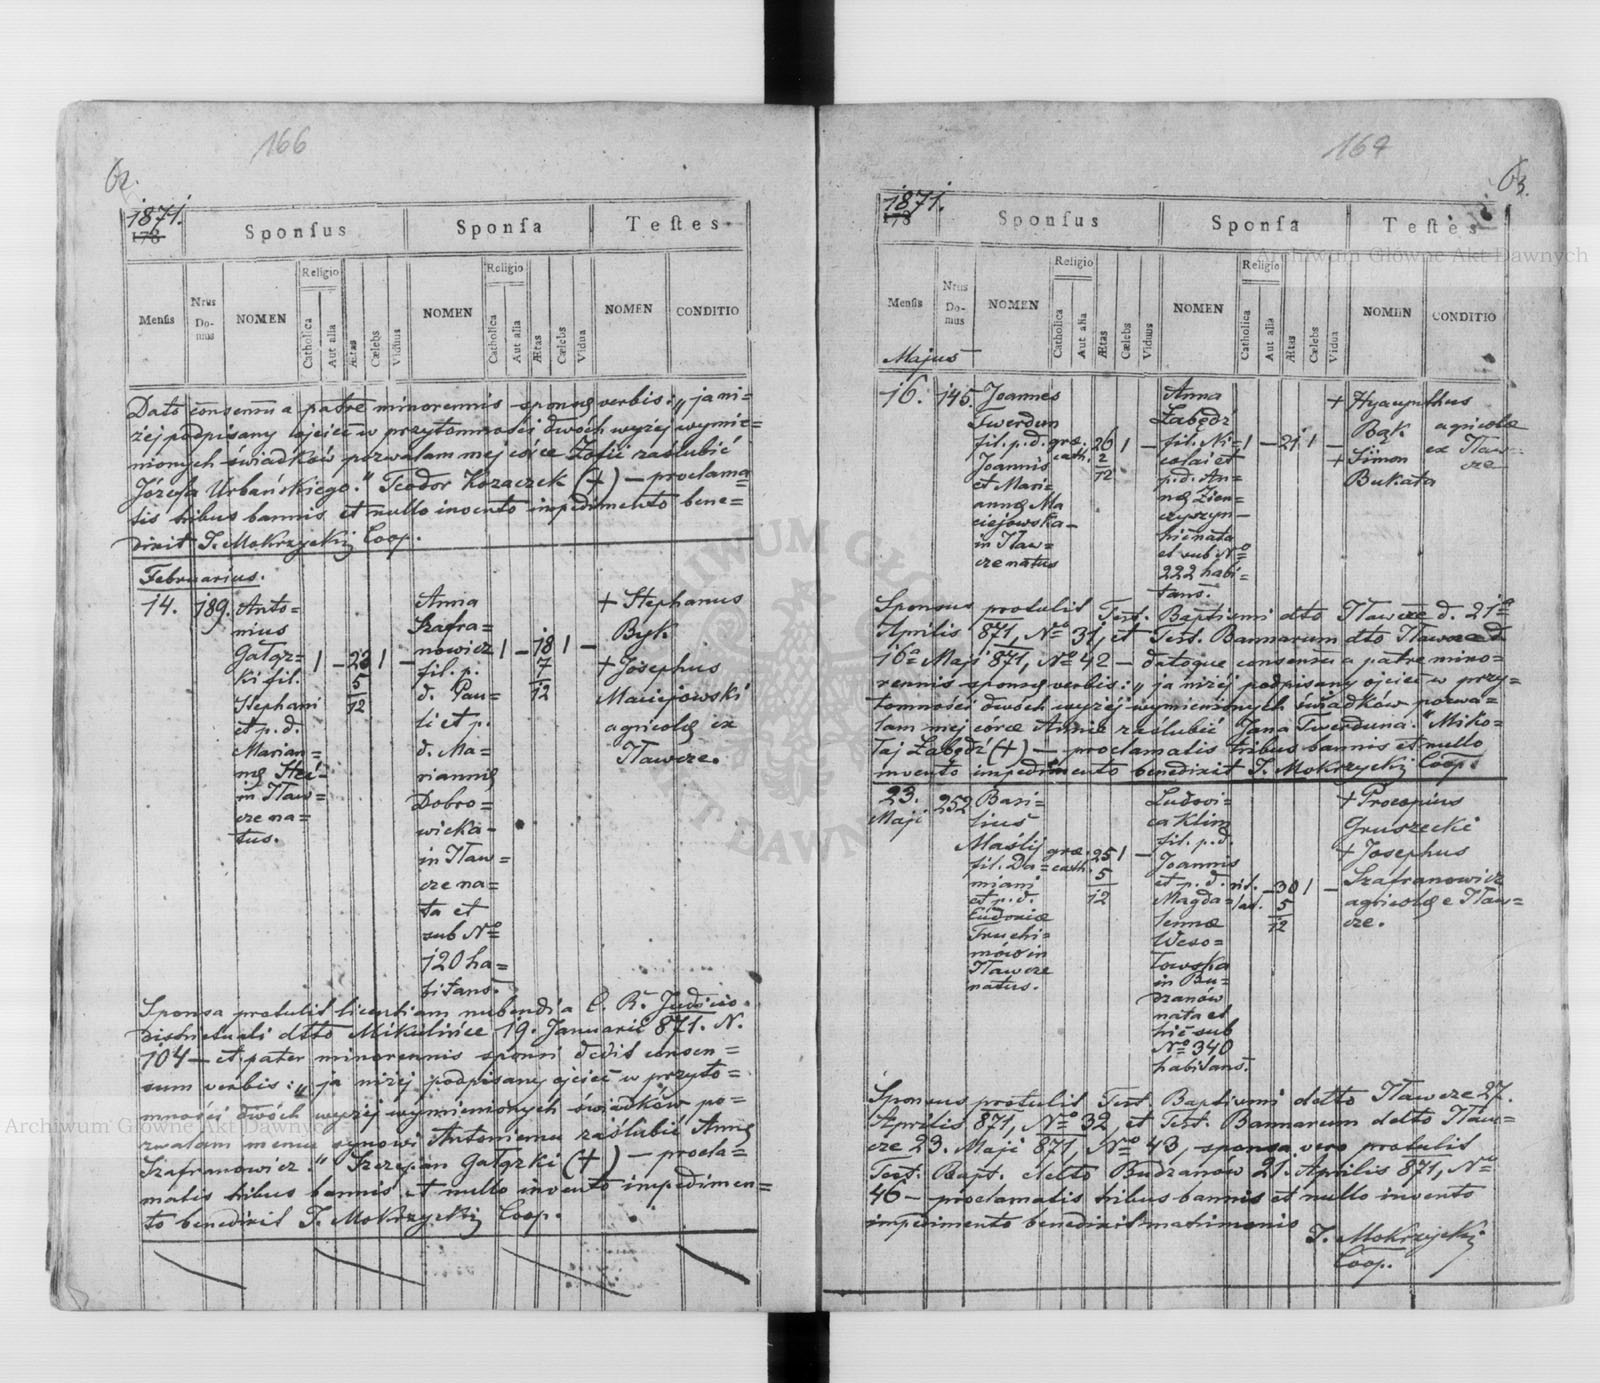 166
62.
1871.
178
Sponsus
Sponsa
Testes
Mensis
Nrus Domus
NOMEN
Religio
Catholica
Aut alia
Ætas
Cælebs
Viduus
NOMEN
Religio
Catholica
Aut alia
Ætas
Cælebs
Vidua
NOMEN
CONDITIO
Dato consensu a patre minorennis sponsæ verbis: „ja ni=
żej podpisany ojciec w przytomności dwóch wyżej wymie=
nionych świadków pozwalam mej córce Zofii zaślubić
Józefa Urbańskiego." Teodor Kozaczek (+) — proclama=
tis tribus bannis et nullo invento impedimento bene=
dixit T. Mokrzycki Coop.
Februarius.
14.
189.
Anto=
nius
Gałąz=
ki fil.
Stephani
et p. d.
Marian=
næ
in Tław=
cze na=
tus.
1 — 23 1 —
5
12
Anna
Szafra=
nowicz
fil. p.
d. Pau=
li et p.
d. Ma=
riannæ
Dobro=
wicka
in Tław=
cze na=
ta et
sub Nº
120 ha=
bitans.
1 — 18 1 —
7
12
+ Stephanus
Byk
+ Josephus
Maciejowski
agricolæ ex
Tławcze.
Sponsa protulit licentiam nubendi a C. R. Judicio
districtuali dtto Mikulińce 19. Januarii 871. N.
104 — et pater minorennis sponsi dedit consen=
sum verbis: „ja niżej podpisany ojciec w przyto=
mności dwóch wyżej wymienionych świadków po=
zwalam memu synowi Antoniemu zaślubić Annę
Szafranowicz." Szczepan Gałązki (+) — procla=
matis tribus bannis et nullo invento impedimen=
to benedixit T. Mokrzycki Coop.
169
63.
1871.
178
Sponsus
Sponsa
Testes
Mensis
Nrus Domus
NOMEN
Religio
Catholica
Aut alia
Ætas
Cælebs
Viduus
NOMEN
Religio
Catholica
Aut alia
Ætas
Cælebs
Vidua
NOMEN
CONDITIO
Majus
16.
145.
Joannes
Twerdun
fil. p. d.
Joannis
et Mari=
annæ Ma
ciejowska
in Tław=
cze natus
græ.
cath.
26 1 —
2
12
Anna
Łabędź
fil. Ni=
colai et
p. d. An=
næ Zien=
czyszyn
hic nata
et sub Nº
222 habi=
tans.
1 — 21 1 —
+ Hyacynthus
Bąk
+ Simon
Bukata
agricolæ
ex Tław=
cze
Sponsus protulit Test. Baptismi dtto Tławcze d. 21ª
Aprilis 871, Nº 31, et Test. Bannorum dtto Tławcze d.
16ª Maji 871, Nº 42 — datoque consensu a patre mino=
rennis sponsæ verbis: „ja niżej podpisany ojciec w przy=
tomności dwóch wyżej wymienionych świadków pozwa=
lam mej córce Annie zaślubić Jana Twerduna." Miko=
łaj Łabędź (+) — proclamatis tribus bannis et nullo
invento impedimento benedixit T. Mokrzycki Coop.
23.
Maji
252.
Basi=
lius
Maślij
fil. Da=
miani
et p. d.
Eudoxiæ
Truchi=
mów in
Tławcze
natus.
græ.
cath.
25 1 —
5
12
Ludovi=
ca Klim
fil. p. d.
Joannis
et p. d.
Magda=
lennæ
Weso=
łowska
in Bu=
dzanów
nata et
hic sub
Nº 340
habitans.
rit.
lat.
— 30 1 —
5
12
+ Procopius
Gruszecki
+ Josephus
Szafranowicz
agricolæ e Tław=
cze.
Sponsus protulit Test. Baptismi detto Tławcze 27.
Aprilis 871, Nº 32, et Test. Bannorum detto Tław=
cze 23. Maji 871, Nº 43, sponsa vero protulit
Test. Bapt. detto Budzanów 21. Aprilis 871, Nº
46 — proclamatis tribus bannis et nullo invento
impedimento benedixit matrimonio
T. Mokrzycki
Coop.
Archiwum Główne Akt Dawnych
Archiwum Główne Akt Dawnych
ARCHIWUM GŁÓWNE AKT DAWNYCH